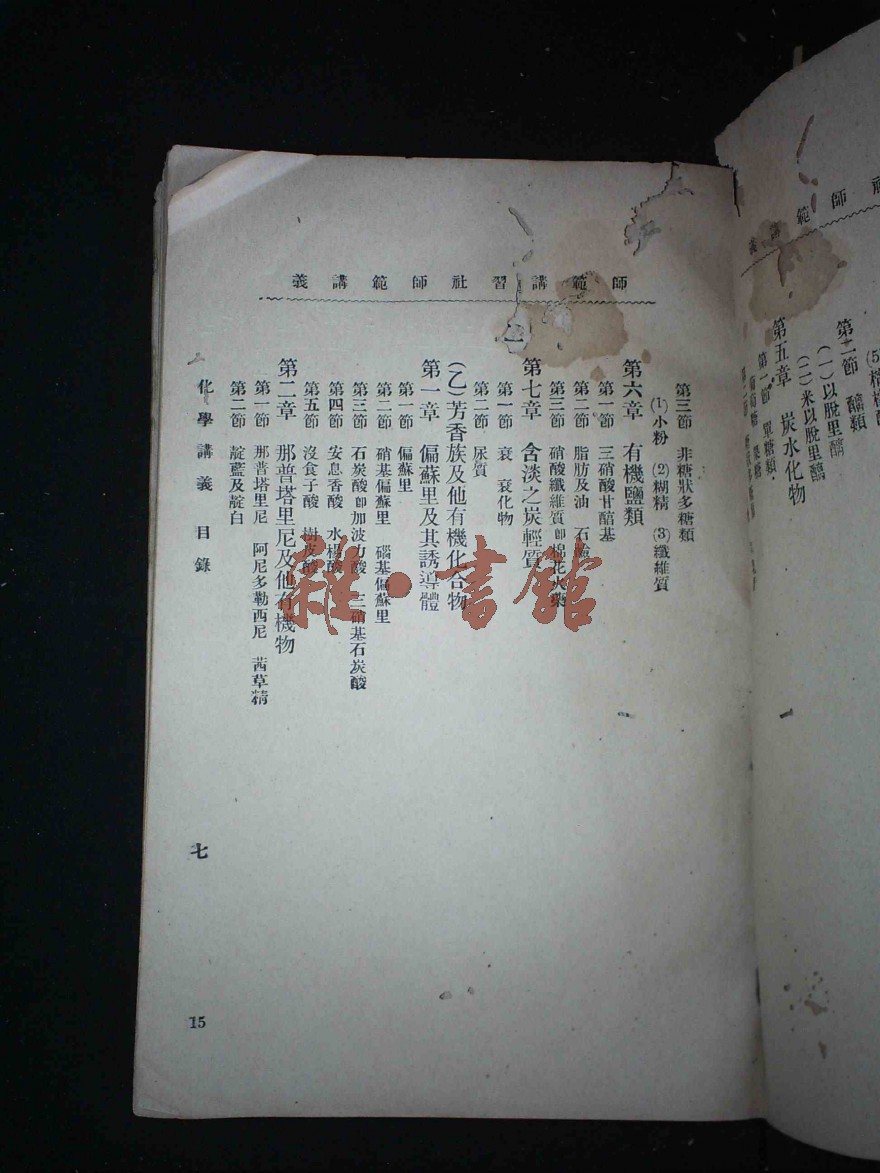 師範講習社師範講義
第三節 非糖狀多糖類
(1)小粉 (2)糊精 (3)纖維質
第六章 有機鹽類
第一節 三硝酸甘䤃基
第二節 脂肪及油 石鹼
第三節 硝酸纖維質即棉花火藥
第七章 含淡之炭輕質
第一節 衰 衰化物
第二節 尿質
(乙)芳香族及他有機化合物
第一章 偏蘇里及其誘導體
第一節 偏蘇里
第二節 硝基偏蘇里 碯基偏蘇里
第三節 石炭酸即加波力酸 三硝基石炭酸
第四節 安息香酸 水楊酸
第五節 沒食子酸 樹皮酸
第二章 那普塔里尼及他有機物
第一節 那普塔里尼 阿尼多勒西尼 茜草精
第二節 靛藍及靛白
化學講義 目錄
七
15
範師社
第二節 醣類
(一)以脫里醣
(二)米以脫里醣
第五章 炭水化物
第一節 單糖類
葡萄糖 果糖
雜·書館